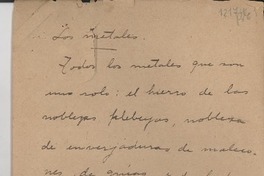 1217186
Los metales.
Todos los metales que son
uno solo: el hierro de las
noblezas plebeyas, nobleza
de envergaduras de maleco-
nes, de grúas